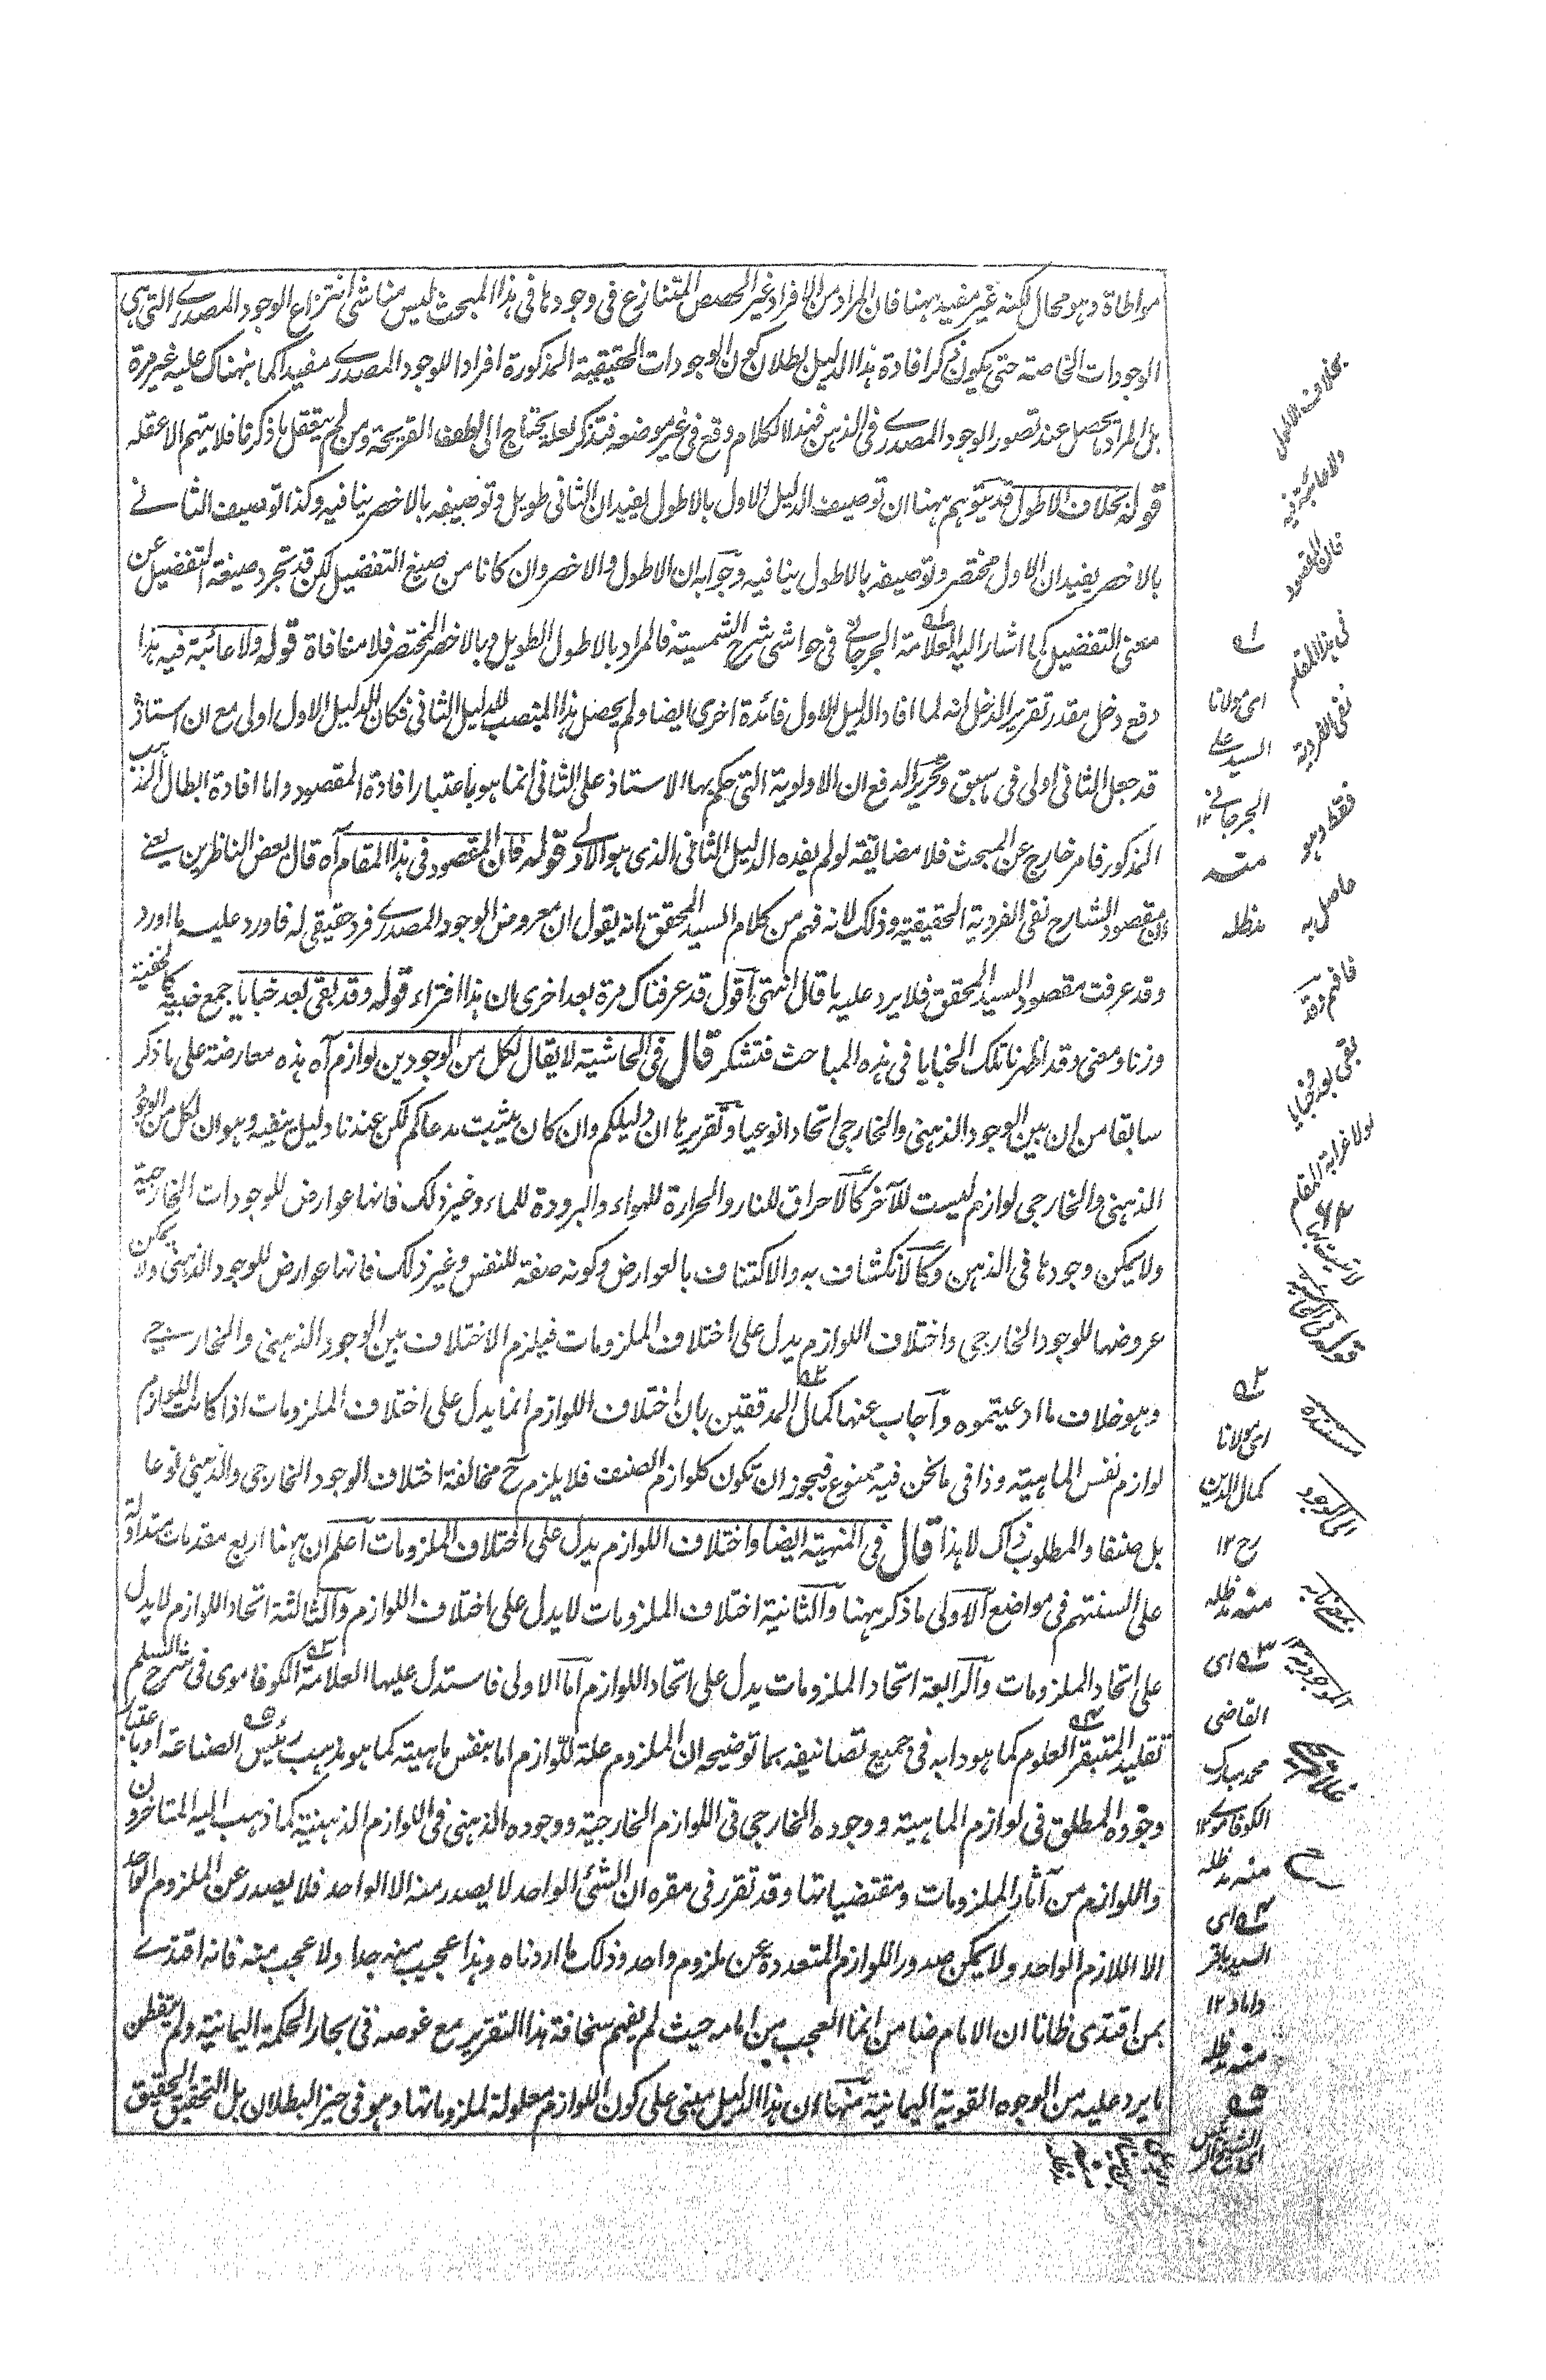 مواطاة وهو محال لكنه غير مفيد ههنا فان المراد من الافراد غير الحصص المتنازع في وجودها في هذا المبحث ليس مناشى انتزاع الوجود المصدرے التى هى
الوجودات الخاصة حتى يكون ذكر افادة هذا الدليل بطلان كون الوجودات الحقيقية المذكورة افرادا للوجود المصدرے مفيدا كما نبهناك عليه غير مرة
بل المراد ما يحصل عند تصور الوجود المصدرے فى الذهن فهذا الكلام وقع فى غير موضعه فتذكر لعله يحتاج الى لطف القريحة ومن لم يتعقل ما ذكرنا فلا يتهم الا عقله
قوله بخلاف الاطول قد يتوهم ههنا ان توصيف الدليل الاول بالاطول يفيد ان الثانى طويل وتوصيفه بالاخصر ينافيه وكذا توصيف الثانے
بالاخصر يفيد ان الاول مختصر وتوصيفه بالاطول ينافيه وجوابه ان الاطول والاخصر وان كانا من صيغ التفضيل لكن قد تجرد صيغة التفضيل عن
معنى التفضيل كما اشار اليه العلامة الجرجانے فى حواشى شرح الشمسية فالمراد بالاطول الطويل وبالاخصر المختصر فلا منافاة قوله ولا عائبة فيه هذا
دفع دخل مقدر تقرير الدخل انه لما افاد الدليل الاول فائدة اخرى ايضا ولم يحصل هذا المنصب للدليل الثانى فكان الدليل الاول اولى مع ان استاذ
قد جعل الثانى اولى فى ما سبق وتحرير الدفع ان الاولوية التى حكم بها الاستاذ على الثانى انما هو باعتبار افادة المقصود واما افادة ابطال المذهب
المذكور فامر خارج عن المبحث فلا مضائقة لو لم يفده الدليل الثانى الذى هو الاولے قوله فان المقصود فى هذا المقام آه قال بعض الناظرين يعنے
ان مقصود الشارح نفى الفردية الحقيقية وذلك لانه فهم من كلام السيد المحقق انه يقول ان معروض الوجود المصدرے فرد حقيقى له فاورد عليه ما اورد
وقد عرفت مقصود السيد المحقق فلا يرد عليه ما قال انتهى اقول قد عرفناك مرة بعد اخرى بان هذا افتراء قوله وقد بقى بعد خبايا جمع خبية كالخفية
وزنا ومعنى وقد اظهرنا تلك الخبايا فى هذه المباحث فتشكر قال فى الحاشية لا يقال لكل من الوجودين لوازم آه هذه معارضة على ما ذكر
سابقا من ان بين الوجود الذهنى والخارجى اتحادا نوعيا وتقريرها ان دليلكم وان كان يثبت مدعاكم لكن عندنا دليل ينفيه وهو ان لكل من الوجود
الذهنى والخارجى لوازم ليست للآخر كالاحراق للنار والحرارة للهواء والبرودة للماء وغير ذلك فانها عوارض للوجودات الخارجية
ولا يمكن وجودها فى الذهن وكالانكشاف به والاكتناف بالعوارض وكونه صفة للنفس وغير ذلك فانها عوارض للوجود الذهنى ولا يمكن
عروضها للوجود الخارجى واختلاف اللوازم يدل على اختلاف الملزومات فيلزم الاختلاف بين الوجود الذهنى والخارجے
وهو خلاف ما ادعيتموه واجاب عنها كمال المدققين بان اختلاف اللوازم انما يدل على اختلاف الملزومات اذا كانت اللوازم
لوازم نفس الماهية وذا فى ما نحن فيه ممنوع فيجوز ان تكون كلوازم الصنف فلا يلزم ح مخالفة اختلاف الوجود الخارجى والذهنى نوعا
بل صنفا والمطلوب ذاك لا هذا قال فى المنهية ايضا واختلاف اللوازم يدل على اختلاف الملزومات اعلم ان ههنا اربع مقدمات متداولة
على السنتهم فى مواضع الاولى ما ذكر ههنا والثانية اختلاف الملزومات لا يدل على اختلاف اللوازم والثالثة اتحاد اللوازم لا يدل
على اتحاد الملزومات والرابعة اتحاد الملزومات يدل على اتحاد اللوازم اما الاولى فاستدل عليها العلامة الكوفاموى فى شرح السلم
تقليد المتبقر العلوم كما هو دابه فى جميع تصانيفه بما توضيحه ان الملزوم علة اللوازم اما بنفس ماهيته كما هو مذهب رئيس الصناعة او باعتبار
وجوده المطلق فى لوازم الماهية ووجوده الخارجى فى اللوازم الخارجية ووجوده الذهنى فى اللوازم الذهنية كما ذهب اليه المتاخرون
واللوازم من آثار الملزومات ومقتضياتها وقد تقرر فى مقره ان الشئ الواحد لا يصدر منه الا الواحد فلا يصدر عن الملزوم الواحد
الا اللازم الواحد ولا يمكن صدور اللوازم المتعددة عن ملزوم واحد وذلك ما اردناه وهذا عجيب منه جدا ولا عجب منه فانه اقتدے
بمن اقتدى ظانا ان الامام ضامن انما العجب من امامه حيث لم يفهم سخافة هذا التقرير مع غوصه فى بحار الحكمة اليمانية ولم يتفطن
ما يرد عليه من الوجوه القوية اليمانية منها ان هذا الدليل مبنى على كون اللوازم معلولة لملزوماتها وهو فى حيز البطلان بل التحقيق الحقيق
بخلاف الاطول
ولا عائبة فيه
فان المقصود
فى هذا المقام
نفى الفردية
فقط وهو
حاصل به
فافهم وقد
بقى بعد خبايا
لولا غرابة المقام
لـه
اى مولانا
السيد على
الجرجانے ١٢
منه
مدظله
اى مولانا
كمال الدين
رح ١٢
منه مدظله
اى
القاضى
محمد مبارك
الكوفاموے ١٢
منه مدظله
اى
السيد باقر
داماد ١٢
منه مدظله